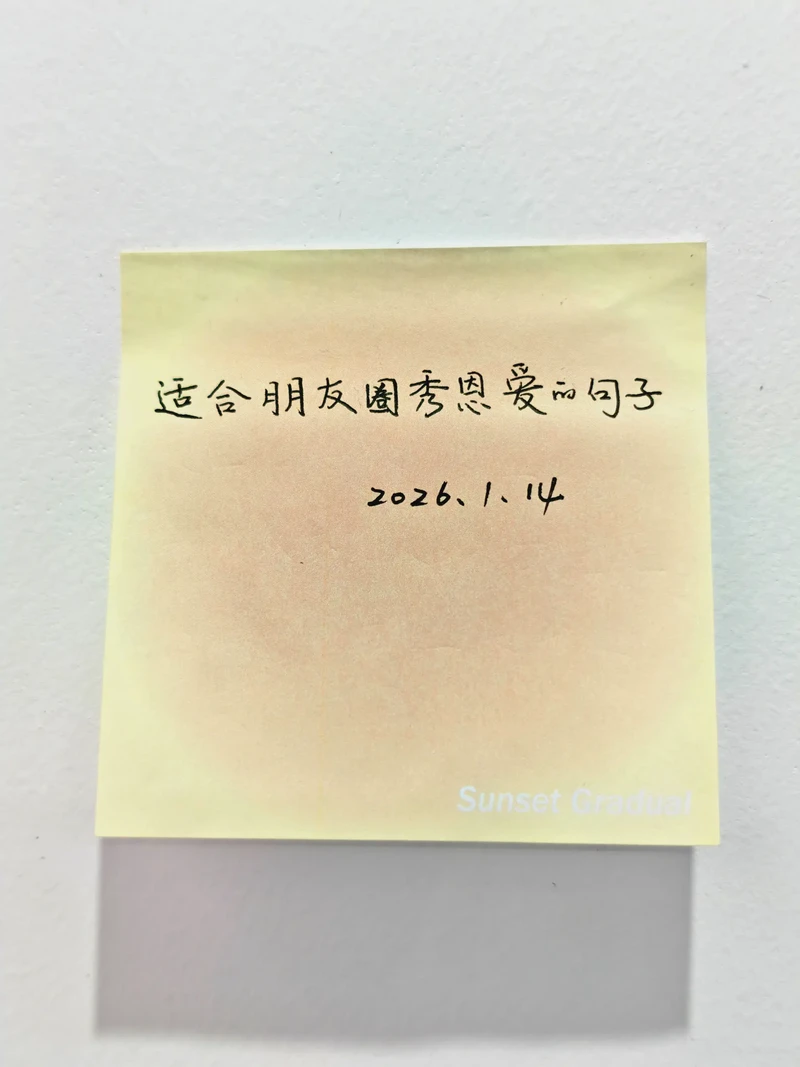 适合朋友圈秀恩爱的句子
2026、1、14
Sunset Gradual